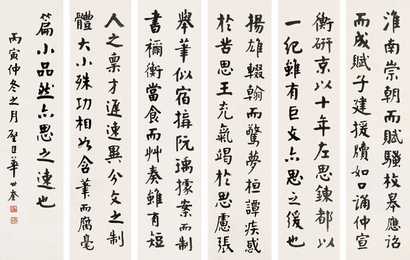 淮南崇朝而賦騷枚皋應詔
而成賦子建援牘如口誦仲宣
衡研京以十年左思鍊都以
一紀雖有巨文亦思之緩也
揚雄輟翰而驚夢桓譚疾感
於苦思王充氣竭於思慮張
舉筆似宿搆阮瑀據案而制
書禰衡當食而艸奏雖有短
人之稟才遲速異分文之制
體大小殊功相如含筆而腐毫
篇小品然亦思之速也
丙寅仲冬之月璧臣華世奎